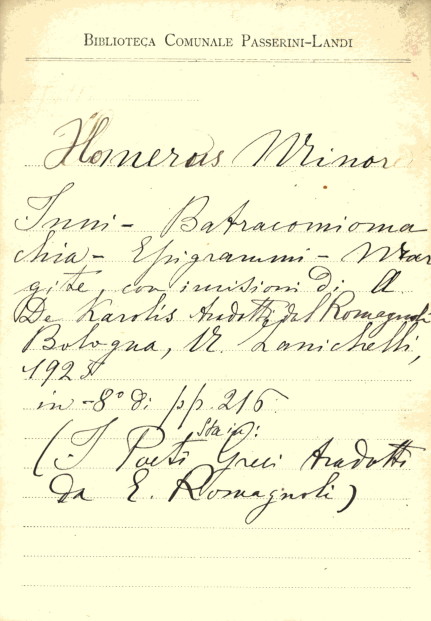 BIBLIOTECA COMUNALE PASSERINI-LANDI
Homerus Minor
Inni - Batracomioma
chia - Epigrammi - Mar
gite, con incisioni di A
De Karolis tradotti dal Romagnoli
Bologna, N. Zanichelli,
1925
in-8° di pp. 216
Sta in:
(I Poeti Greci tradotti
da E. Romagnoli)